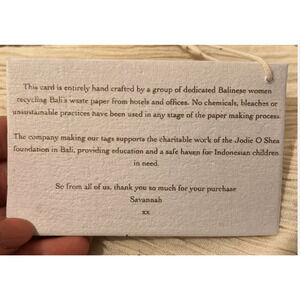 This card is entirely hand crafted by a group of dedicated Balinese women
recycling Bali's waste paper from hotels and offices. No chemicals, bleaches or
unsustainable practices have been used in any stage of the paper making process.
The company making our tags supports the charitable work of the Jodie O Shea
foundation in Bali, providing education and a safe haven for Indonesian children
in need.
So from all of us, thank you so much for your purchase
Savannah
xx